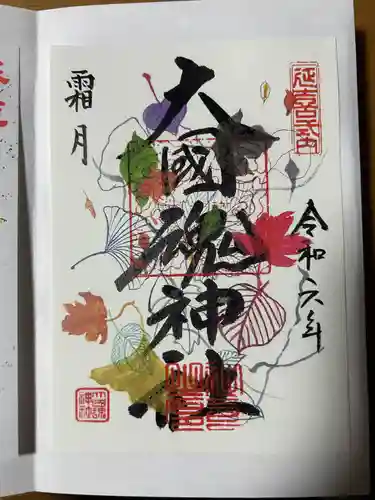 延喜式内
令和六年
大國魂神社
霜月